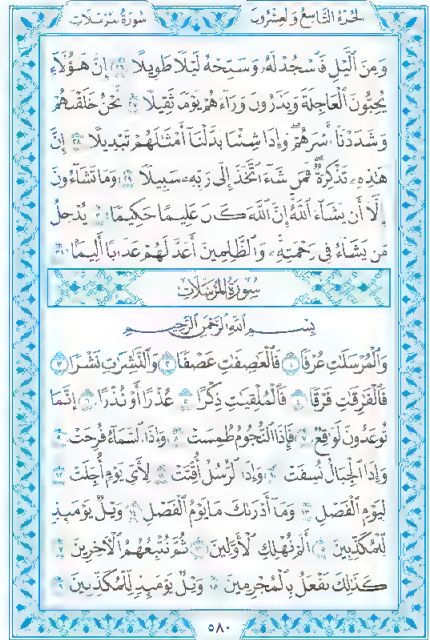 سُورَةُ المُرْسَلَات
الجُزْءُ التَّاسِعُ وَالعِشْرُونَ
وَمِنَ ٱلَّيْلِ فَٱسْجُدْ لَهُۥ وَسَبِّحْهُ لَيْلًا طَوِيلًا ٢٦ إِنَّ هَٰٓؤُلَآءِ
يُحِبُّونَ ٱلْعَاجِلَةَ وَيَذَرُونَ وَرَآءَهُمْ يَوْمًا ثَقِيلًا ٢٧ نَّحْنُ خَلَقْنَٰهُمْ
وَشَدَدْنَآ أَسْرَهُمْ ۖ وَإِذَا شِئْنَا بَدَّلْنَآ أَمْثَٰلَهُمْ تَبْدِيلًا ٢٨ إِنَّ
هَٰذِهِۦ تَذْكِرَةٌ ۖ فَمَن شَآءَ ٱتَّخَذَ إِلَىٰ رَبِّهِۦ سَبِيلًا ٢٩ وَمَا تَشَآءُونَ
إِلَّآ أَن يَشَآءَ ٱللَّهُ ۚ إِنَّ ٱللَّهَ كَانَ عَلِيمًا حَكِيمًا ٣٠ يُدْخِلُ
مَن يَشَآءُ فِى رَحْمَتِهِۦ ۚ وَٱلظَّٰلِمِينَ أَعَدَّ لَهُمْ عَذَابًا أَلِيمًا ٣١
سُورَةُ المُرْسَلَاتِ
بِسْمِ ٱللَّهِ ٱلرَّحْمَٰنِ ٱلرَّحِيمِ
وَٱلْمُرْسَلَٰتِ عُرْفًا ١ فَٱلْعَٰصِفَٰتِ عَصْفًا ٢ وَٱلنَّٰشِرَٰتِ نَشْرًا ٣
فَٱلْفَٰرِقَٰتِ فَرْقًا ٤ فَٱلْمُلْقِيَٰتِ ذِكْرًا ٥ عُذْرًا أَوْ نُذْرًا ٦ إِنَّمَا
تُوعَدُونَ لَوَٰقِعٌ ٧ فَإِذَا ٱلنُّجُومُ طُمِسَتْ ٨ وَإِذَا ٱلسَّمَآءُ فُرِجَتْ ٩
وَإِذَا ٱلْجِبَالُ نُسِفَتْ ١٠ وَإِذَا ٱلرُّسُلُ أُقِّتَتْ ١١ لِأَىِّ يَوْمٍ أُجِّلَتْ ١٢
لِيَوْمِ ٱلْفَصْلِ ١٣ وَمَآ أَدْرَىٰكَ مَا يَوْمُ ٱلْفَصْلِ ١٤ وَيْلٌ يَوْمَئِذٍ
لِّلْمُكَذِّبِينَ ١٥ أَلَمْ نُهْلِكِ ٱلْأَوَّلِينَ ١٦ ثُمَّ نُتْبِعُهُمُ ٱلْءَاخِرِينَ ١٧
كَذَٰلِكَ نَفْعَلُ بِٱلْمُجْرِمِينَ ١٨ وَيْلٌ يَوْمَئِذٍ لِّلْمُكَذِّبِينَ ١٩
٥٨٠